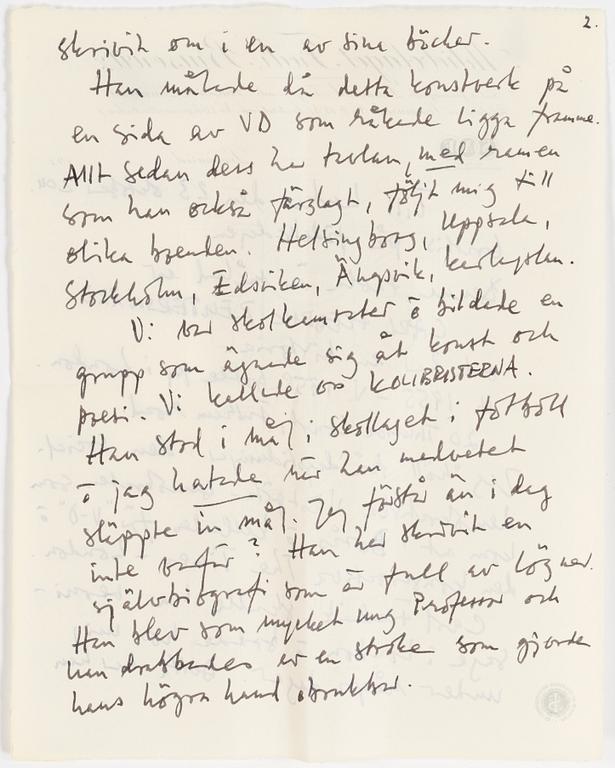 2.
skrivit om i en av sina böcker.
Han målade då detta konstverk på
en sida av VD som råkade ligga framme.
Allt sedan dess har tavlan, med ramen
som han också färglagt, följt mig till
olika boenden. Helsingborg, Uppsala,
Stockholm, Edsviken, Ängsvik, Karlaplan.
Vi var skolkamrater o bildade en
grupp som ägnade sig åt konst och
poesi. Vi kallade oss KOLIBRISTERNA.
Han stod i mål, i skollaget i fotboll
o jag hatade när han medvetet
släppte in mål. Jag förstår än i dag
inte varför? Han har skrivit en
självbiografi som är full av lögner.
Han blev som mycket ung Professor och
han drabbades av en stroke som gjorde
hans högra hand obrukbar.